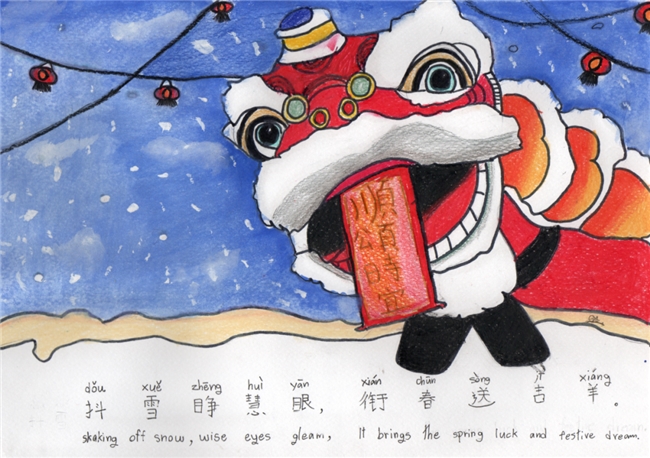 順頌時宜
dǒu xuě zhēng huì yǎn xián chūn sòng jí xiáng
抖雪睁慧眼，衔春送吉羊。
skaking off snow, wise eyes gleam, It brings the spring luck and festive dream.